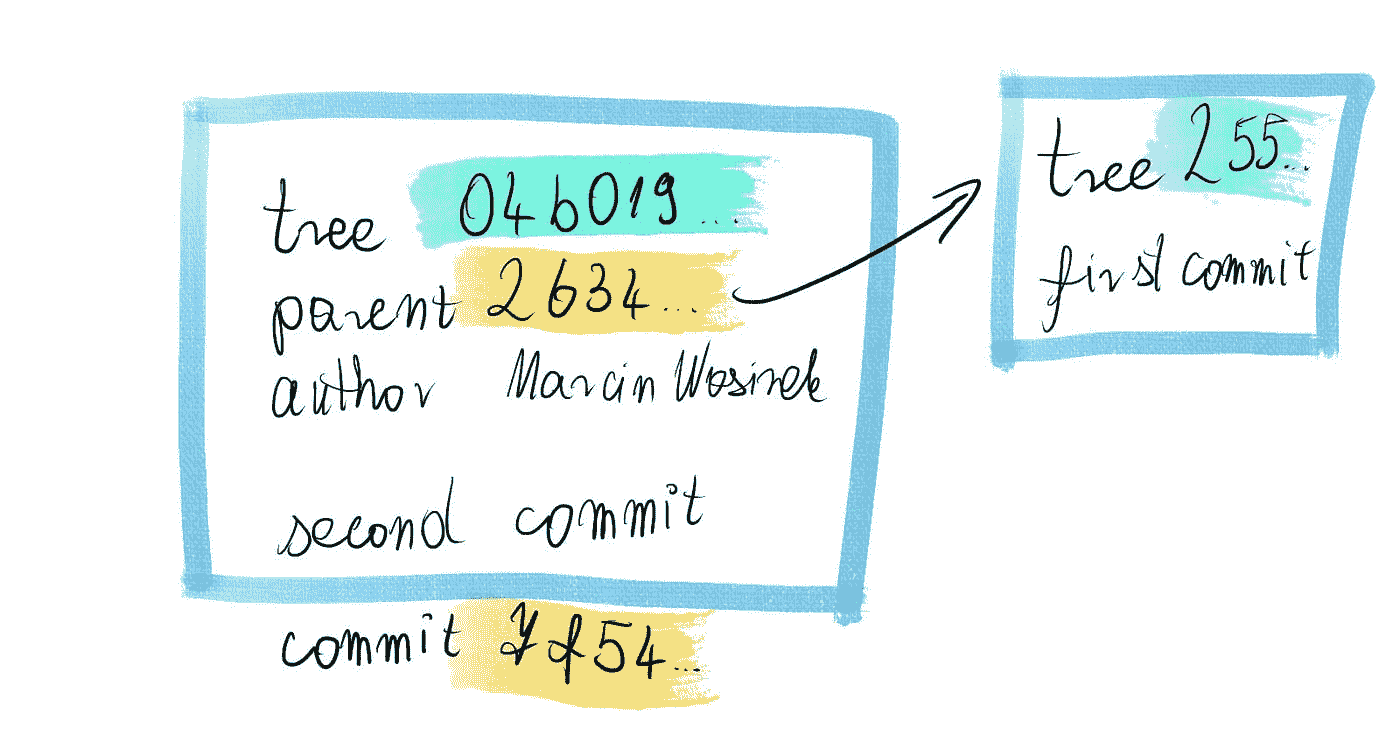 tree 04b019...
parent 2634...
author Marcin Wosinek
second commit
commit 7f54...
tree 255...
first commit